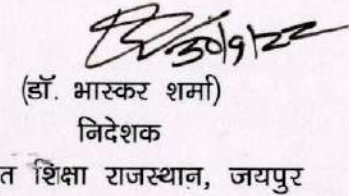 30/9/22
(डॉ. भास्कर शर्मा)
निदेशक
त शिक्षा राजस्थान, जयपुर